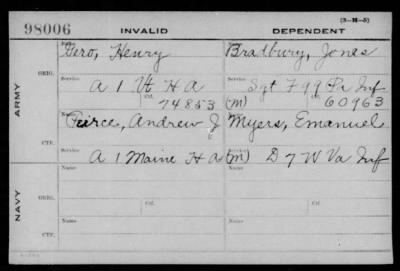 (3-H-5)
98006 INVALID DEPENDENT
ARMY
ORIG.
Name
Gero, Henry
Bradbury, Jones
Service
A 1 Vt H A
Ctf.
74853
Service
Sgt F 99 Pa Inf
(m)
Ctf.
60963
CTF.
Pierce, Andrew J
Myers, Emanuel
Service
A 1 Maine H A
(m) D 7 W Va Inf
NAVY
ORIG.
Name
Name
Service
Ctf.
Service
Ctf.
CTF.
Name
Name